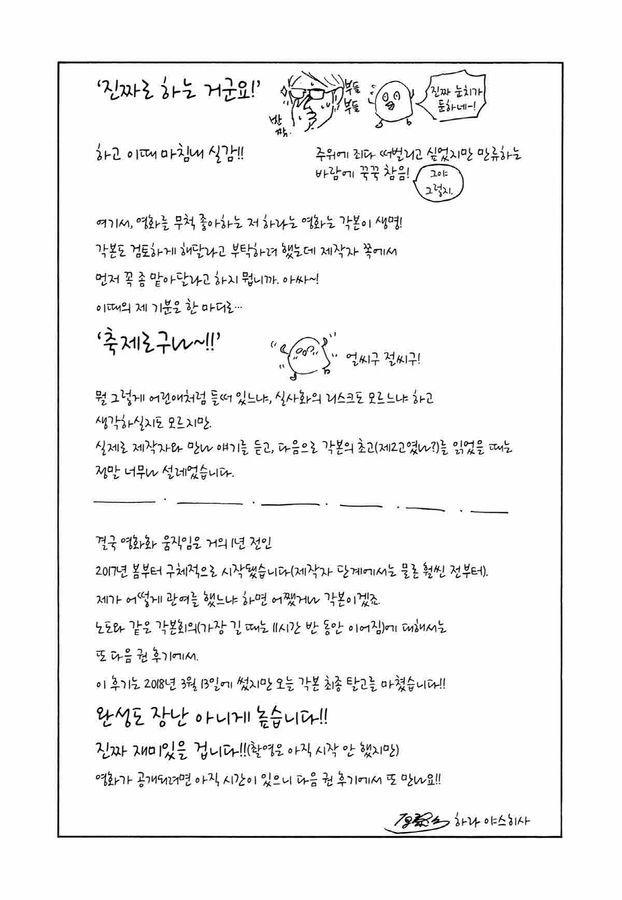 '진짜로 하는 거군요!'
부들
부들
반
짝
진짜 눈치가
둔하네~!
하고 이때 마침내 실감!!
주위에 죄다 떠벌리고 싶었지만 만류하는
바람에 꾹꾹 참음!
그야
그렇지.
여기서, 영화를 무척 좋아하는 저 하라는 영화는 각본이 생명!
각본도 검토하게 해달라고 부탁하려 했는데 제작자 쪽에서
먼저 꼭 좀 맡아달라고 하지 뭡니까. 아싸~!
이때의 제 기분을 한 마디로…
'축제로구나~!!'
얼씨구 절씨구!
뭘 그렇게 어린애처럼 들떠 있느냐, 실사화의 리스크도 모르느냐 하고
생각하실지도 모르지만.
실제로 제작자와 만나 얘기를 듣고, 다음으로 각본의 초고(제2고였나?)를 읽었을 때는
정말 너무나 설레었습니다.
결국 영화화 움직임은 거의 1년 전인
2017년 봄부터 구체적으로 시작됐습니다(제작자 단계에서는 물론 훨씬 전부터).
제가 어떻게 관여를 했느냐 하면 어쨌거나 각본이겠죠.
노도와 같은 각본회의(가장 길 때는 11시간 반 동안 이어짐)에 대해서는
또 다음 권 후기에서.
이 후기는 2018년 3월 13일에 썼지만 오늘 각본 최종 탈고를 마쳤습니다!!
완성도 장난 아니게 높습니다!!
진짜 재미있을 겁니다!!(촬영은 아직 시작 안 했지만)
영화가 공개되려면 아직 시간이 있으니 다음 권 후기에서 또 만나요!!
하라 야스히사